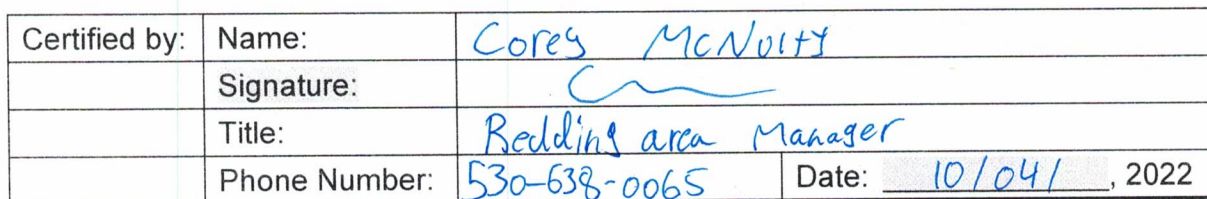 Certified by: Name: Corey McNulty
Signature:
Title: Redding area Manager
Phone Number: 530-638-0065 Date: 10/04/, 2022